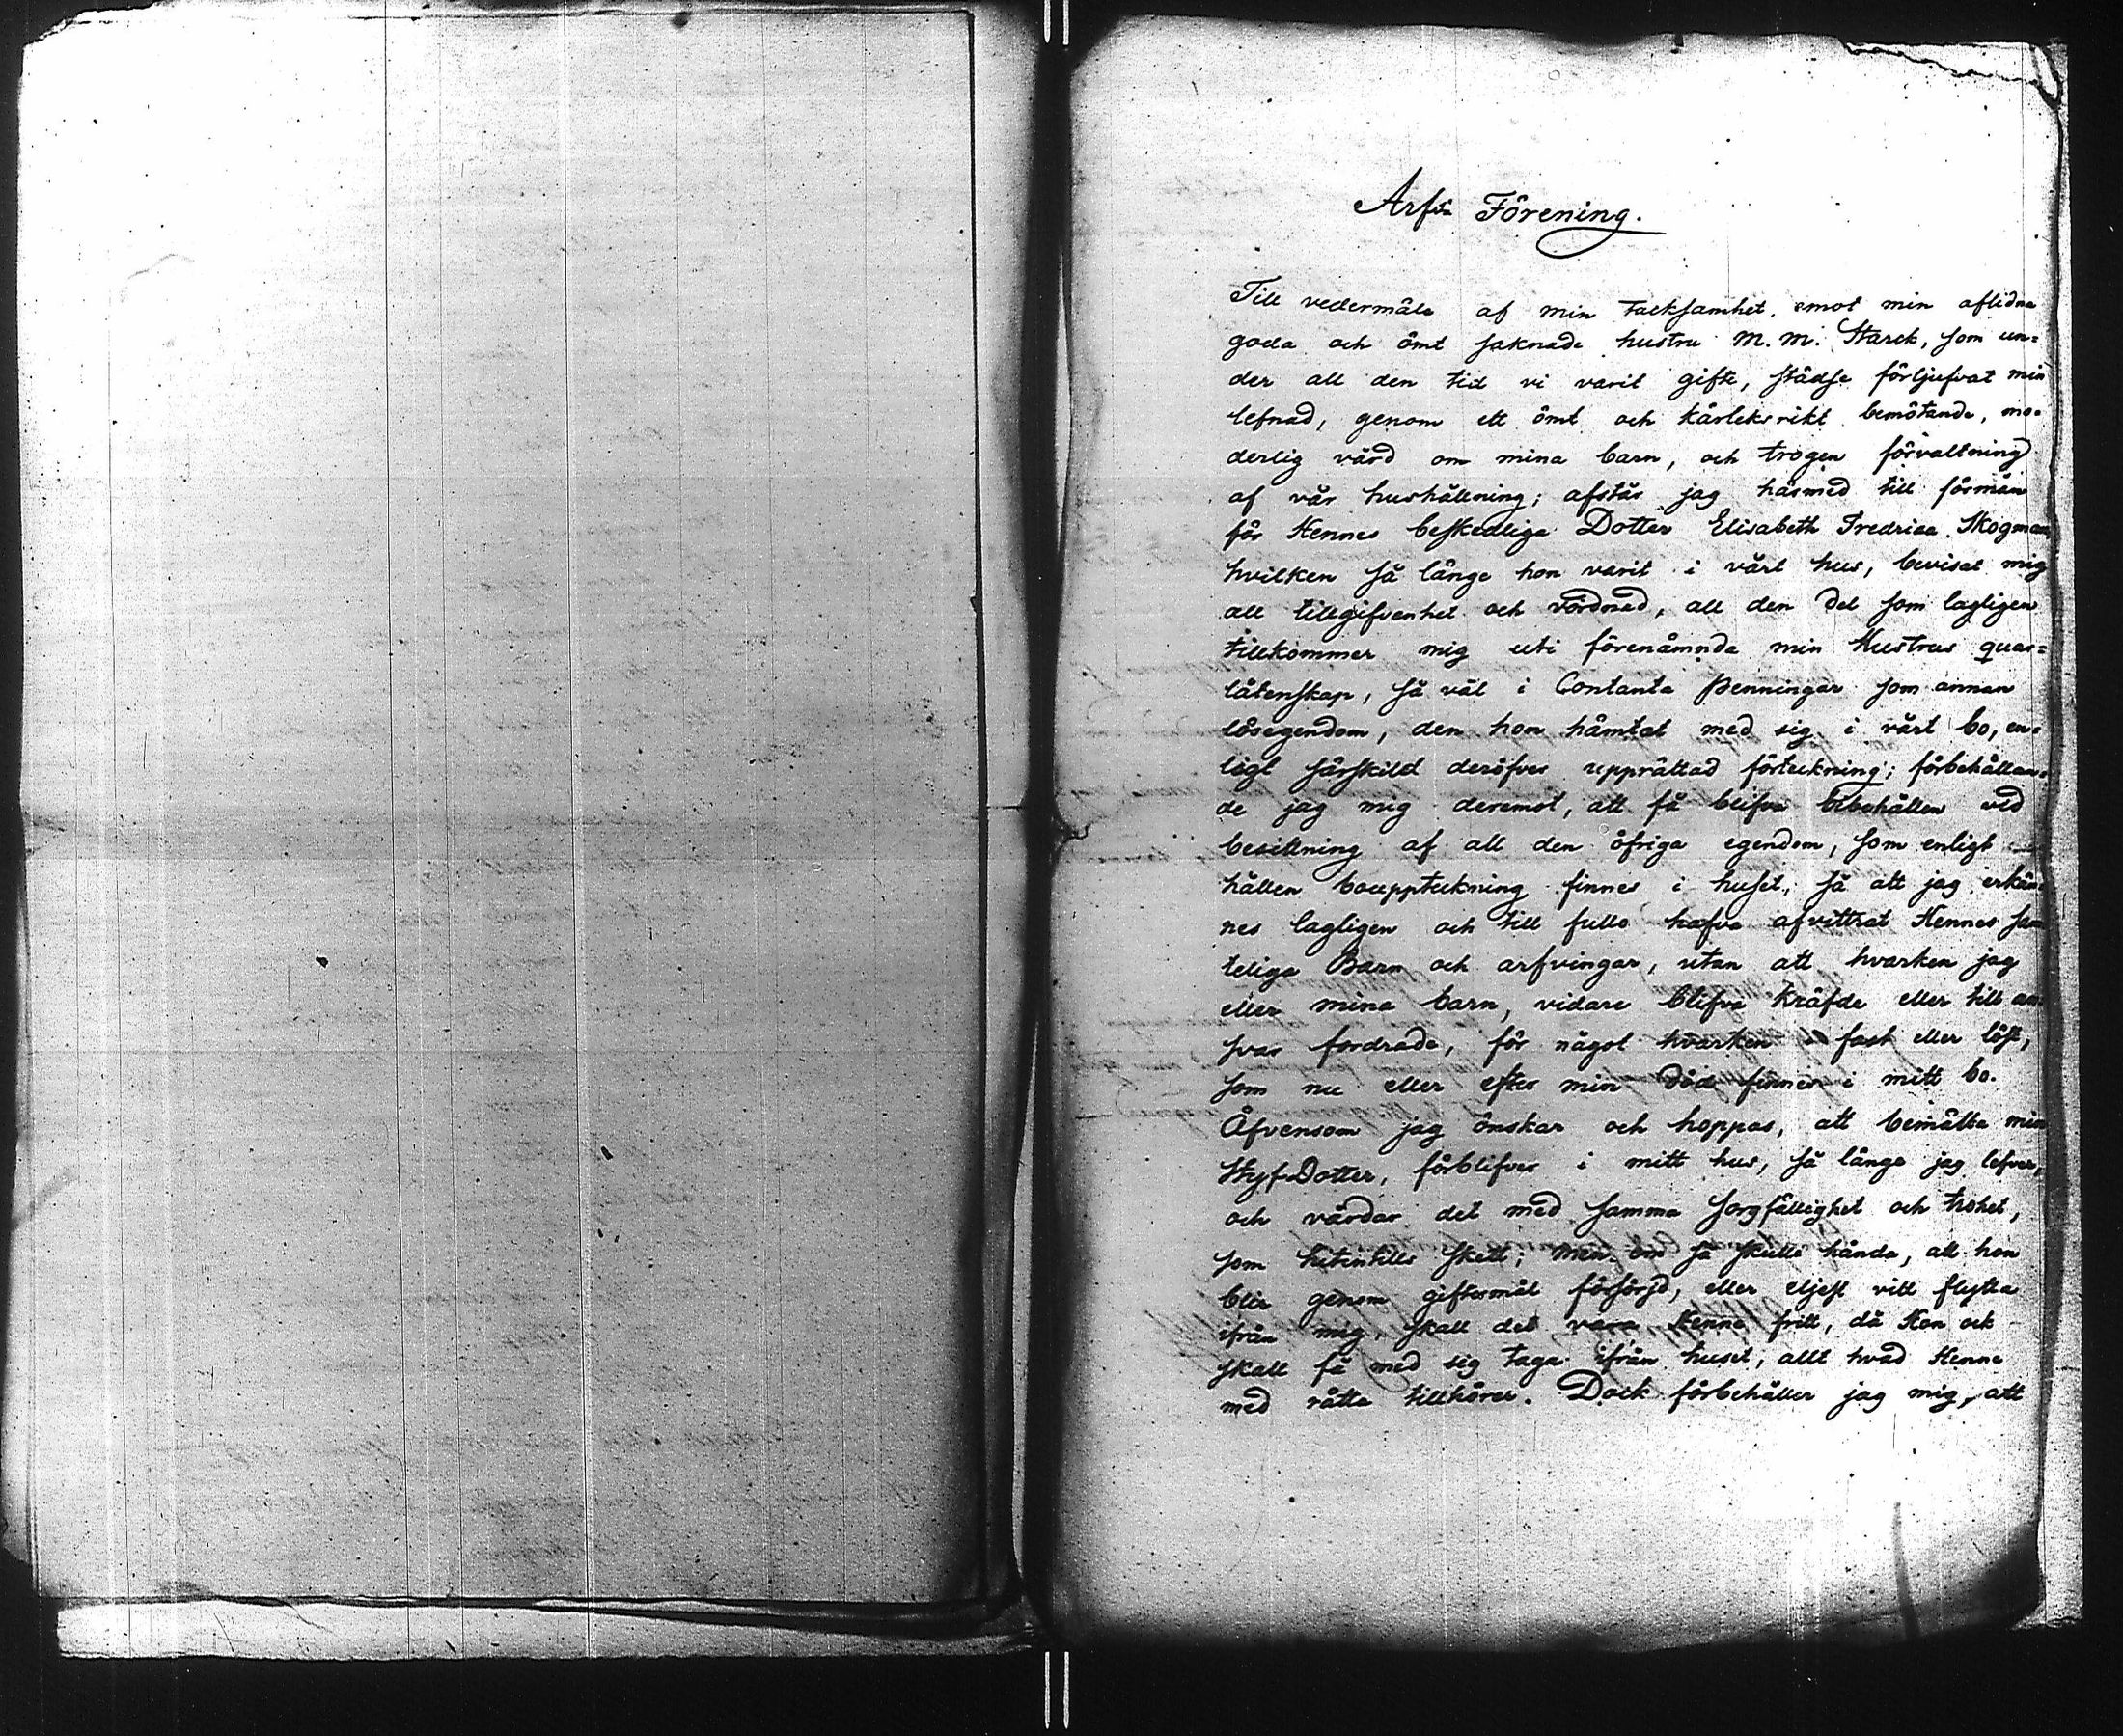 Arfs Förening.
Till vedermäle af min tacksamhet emot min aflidna
goda och ömt saknade hustru M. M. Starck, som un=
der all den tid vi varit gifte, städse förljufvat min
lefnad, genom ett ömt och kärleksrikt bemötande, mo=
derlig vård om mina barn, och trogen förvaltning
af vår hushållning; afstår jag härmed till förmån
för Hennes beskedliga Dotter Elisabeth Fredrica Skogman
hvilken så länge hon varit i vårt hus, bevisat mig
all tillgifvenhet och vördnad, all den del som lagligen
tillkommer mig uti förenämnda min Hustrus quar=
låtenskap, så väl i Contanta penningar som annan
lösegendom, den hon hämtat med sig i vårt bo, en=
ligt särskild deröfver upprättad förteckning; förbehållan=
de jag mig deremot, att få blifva bibehållen vid
besittning af all den öfriga egendom, som enligt
hållen bouppteckning finnes i huset, så att jag erkän=
nes lagligen och till fullo hafva afvittrat Hennes sam
teliga Barn och arfvingar, utan att hvarken jag
eller mina barn, vidare blifva kräfde eller till an=
svar fordrade, för något hvarken fast eller löst,
som nu eller efter min död finnes i mitt bo.
Äfvensom jag önskar och hoppas, att bemälte min
StyfDotter, förblifver i mitt hus, så länge jag lefver,
och vårdar det med samma sorgfällighet och trohet,
som hitintills skett; men om så skulle hända, att hon
blir genom giftermål försörjd, eller eljest vill flytta
ifrån mig, skall det vara Henne fritt, då Hon ock
skall få med sig taga ifrån huset, allt hvad Henne
med rätta tillhörer. Dock förbehåller jag mig, att